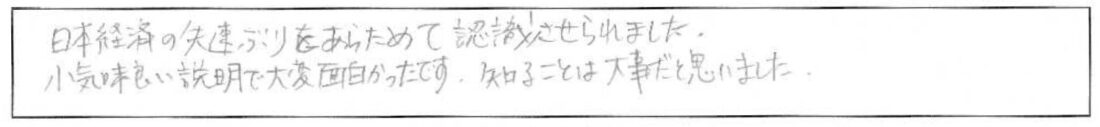 日本経済の失速ぶりをあらためて認識させられました.
小気味良い説明で大変面白かったです. 知ることは大事だと思いました.